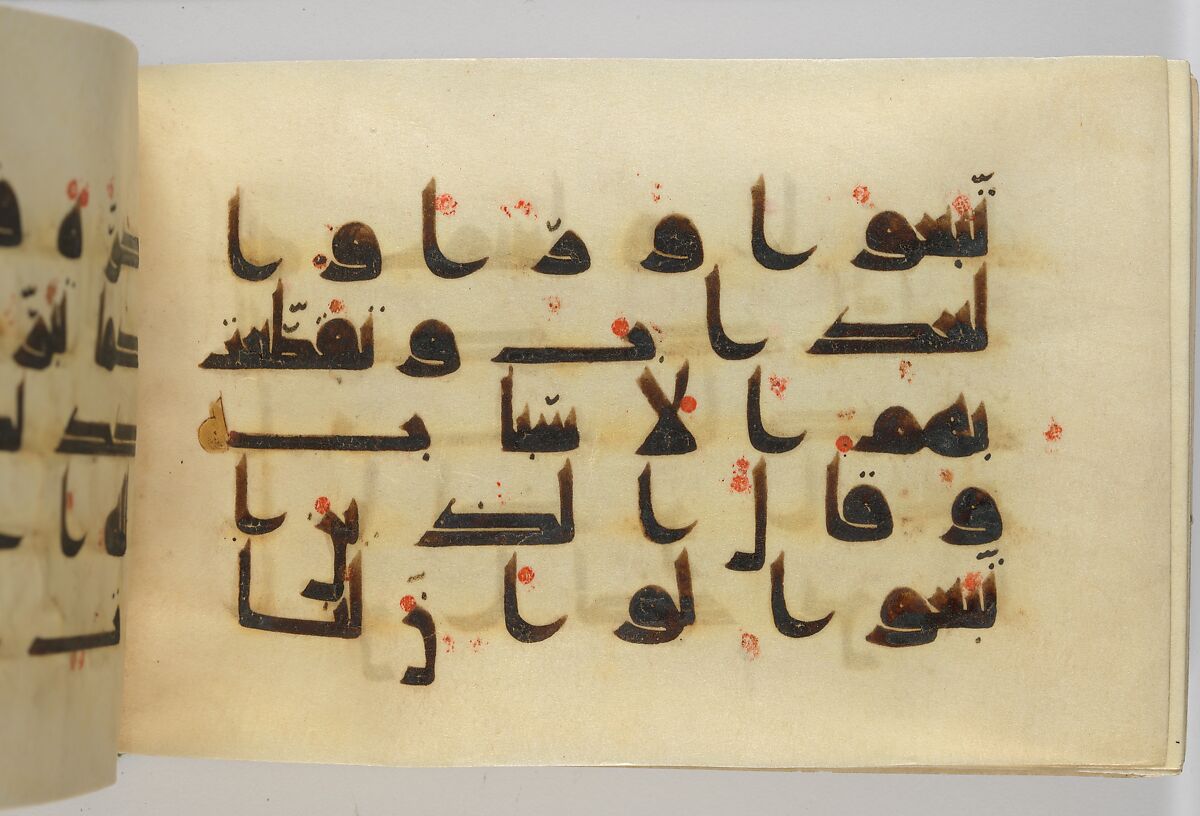 تّبعوا و را وا ا
لعذا ب و تقطّعت
بهم ا لا سبا ب
و قا ل ا لذ ين ا
تّبعوا لو ا نَ لنا